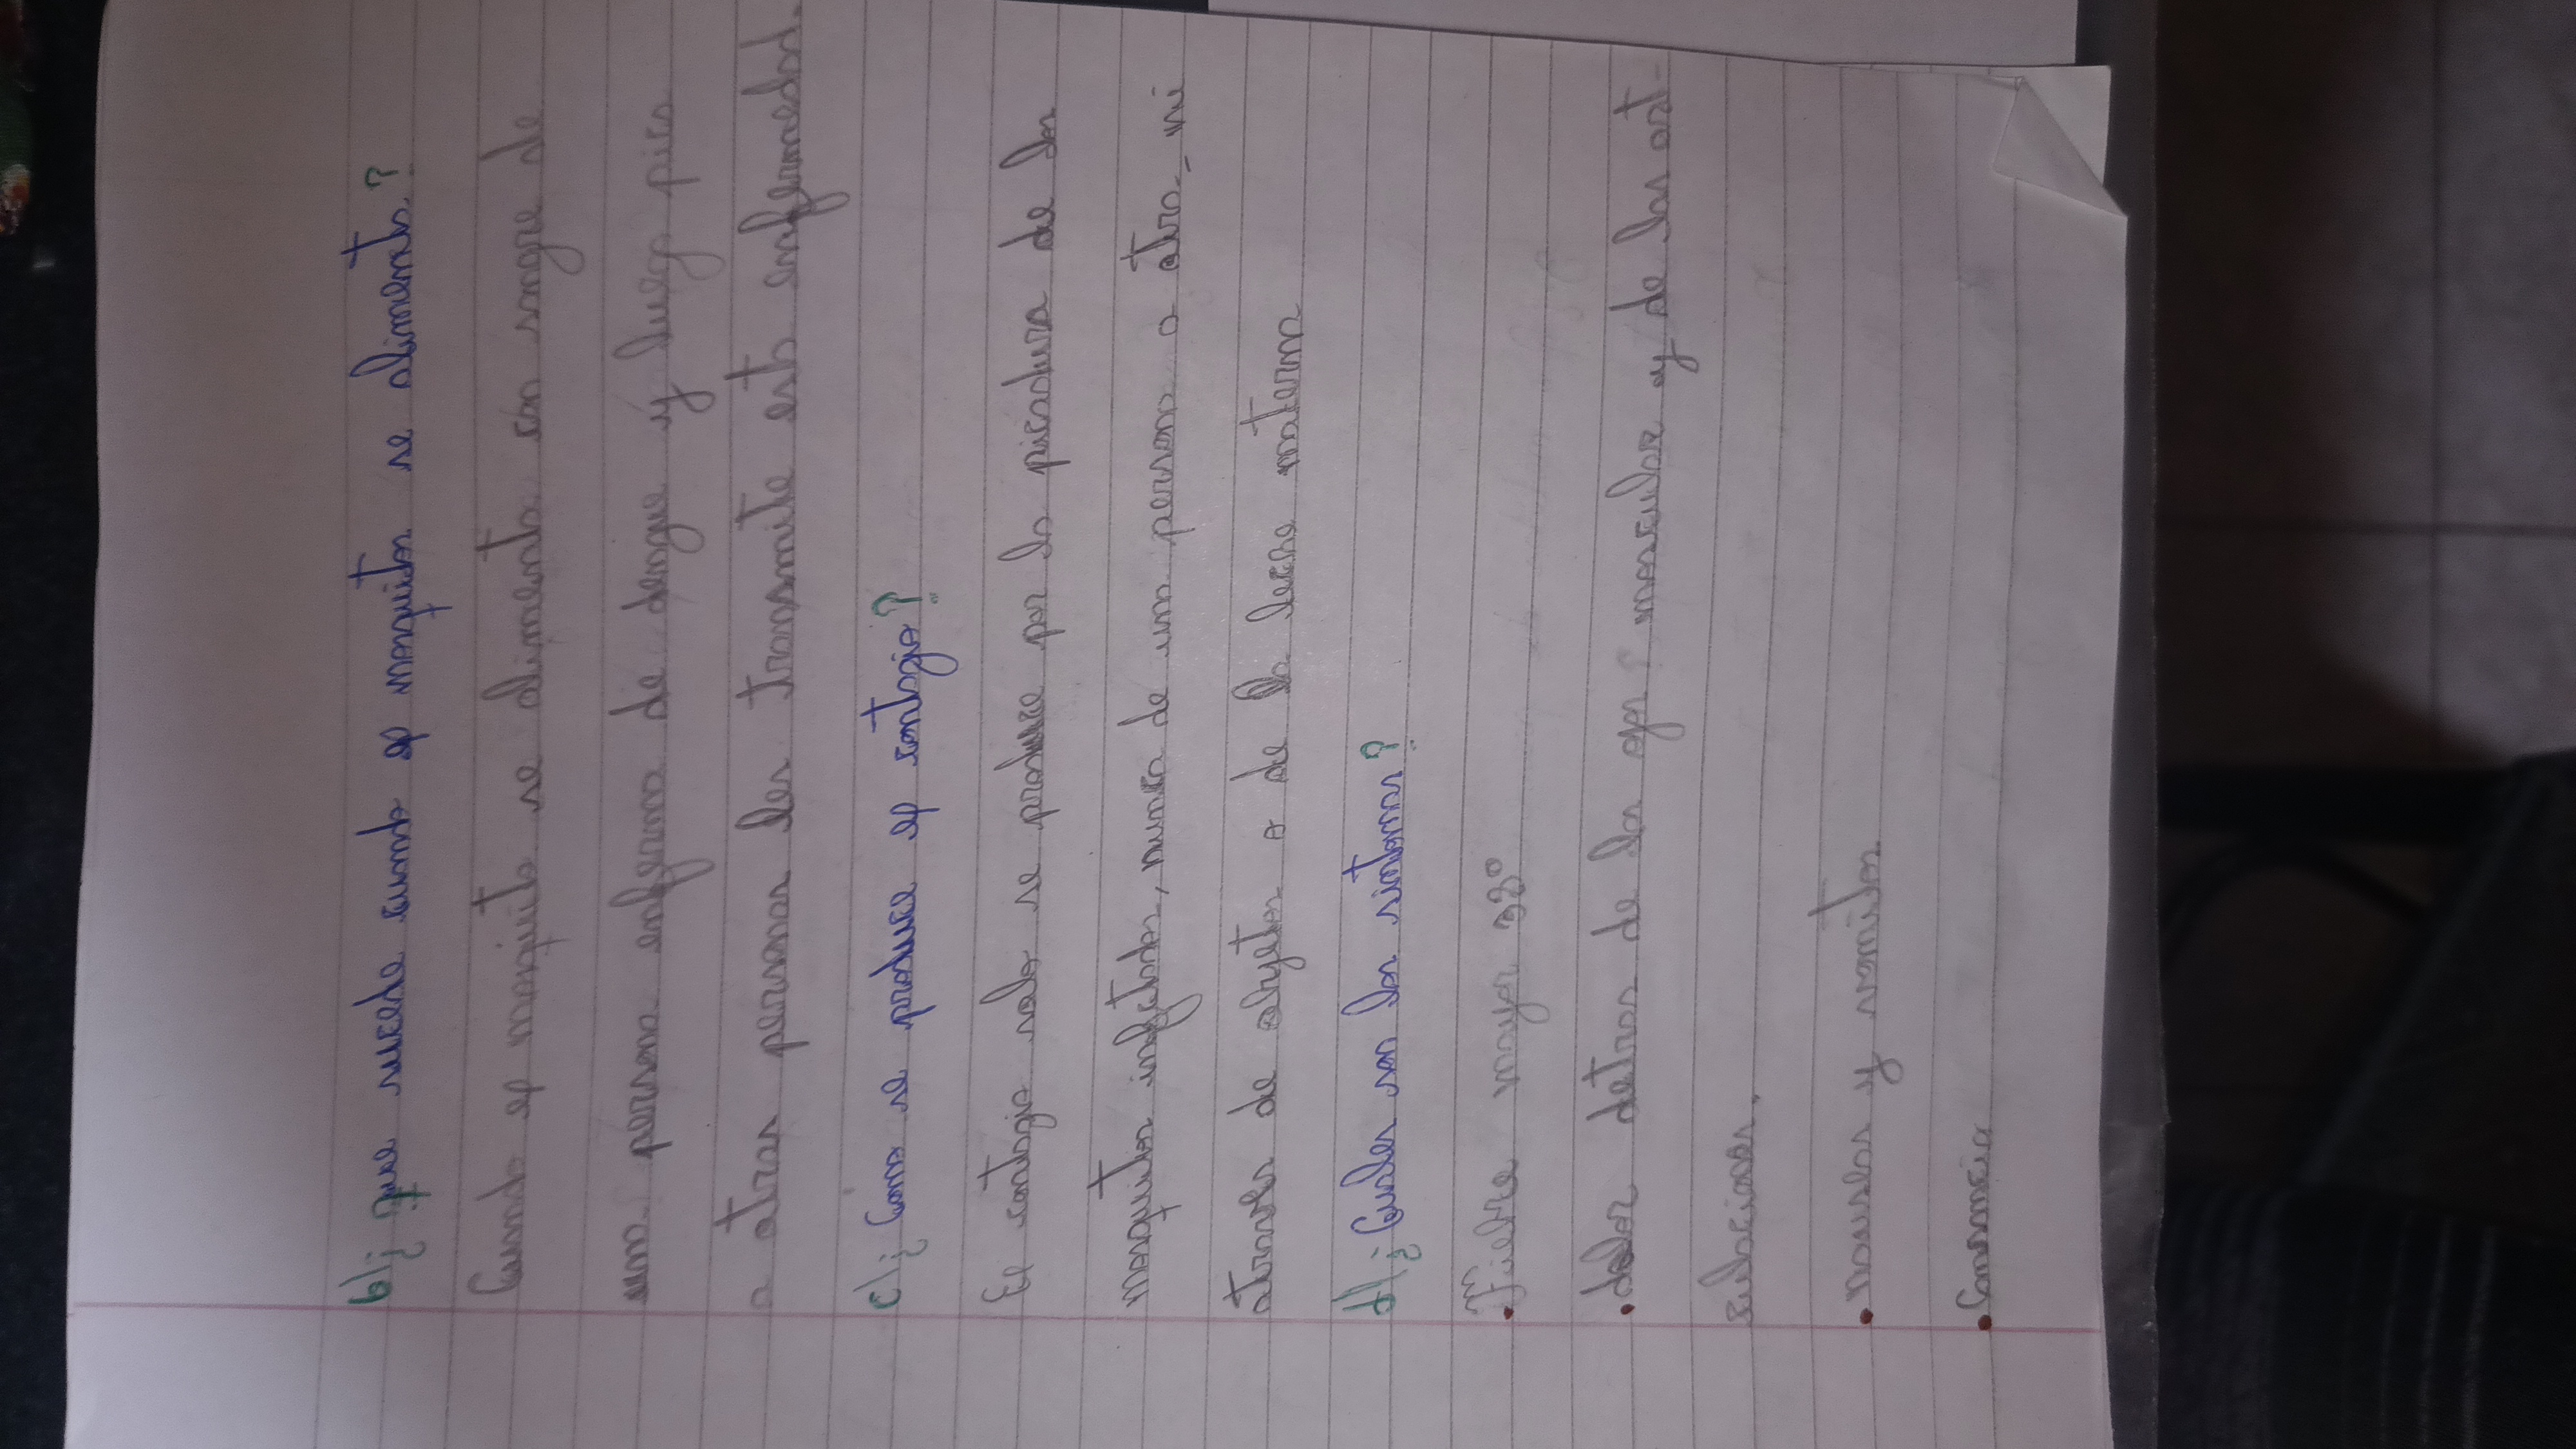 b)¿que sucede cuando el mosquitos se alimenta?
Cuando el mosquito se alimenta con sangre de
una persona enferma de dengue y luego pica
a otras personas les transmite esta enfermedad.
c)¿Como se produce el contagio?
El contagio solo se produce por la picadura de los
mosquitos infectados, nunca de una persona a otra_ ni
através de objetos o de la leche materna
d)¿Cuales son los sintomas?
• Fiebre mayor 38°
• dolor detras de los ojos muscular y de las art-
iculaciones.
• nauseas y vomitos
• Cansancio